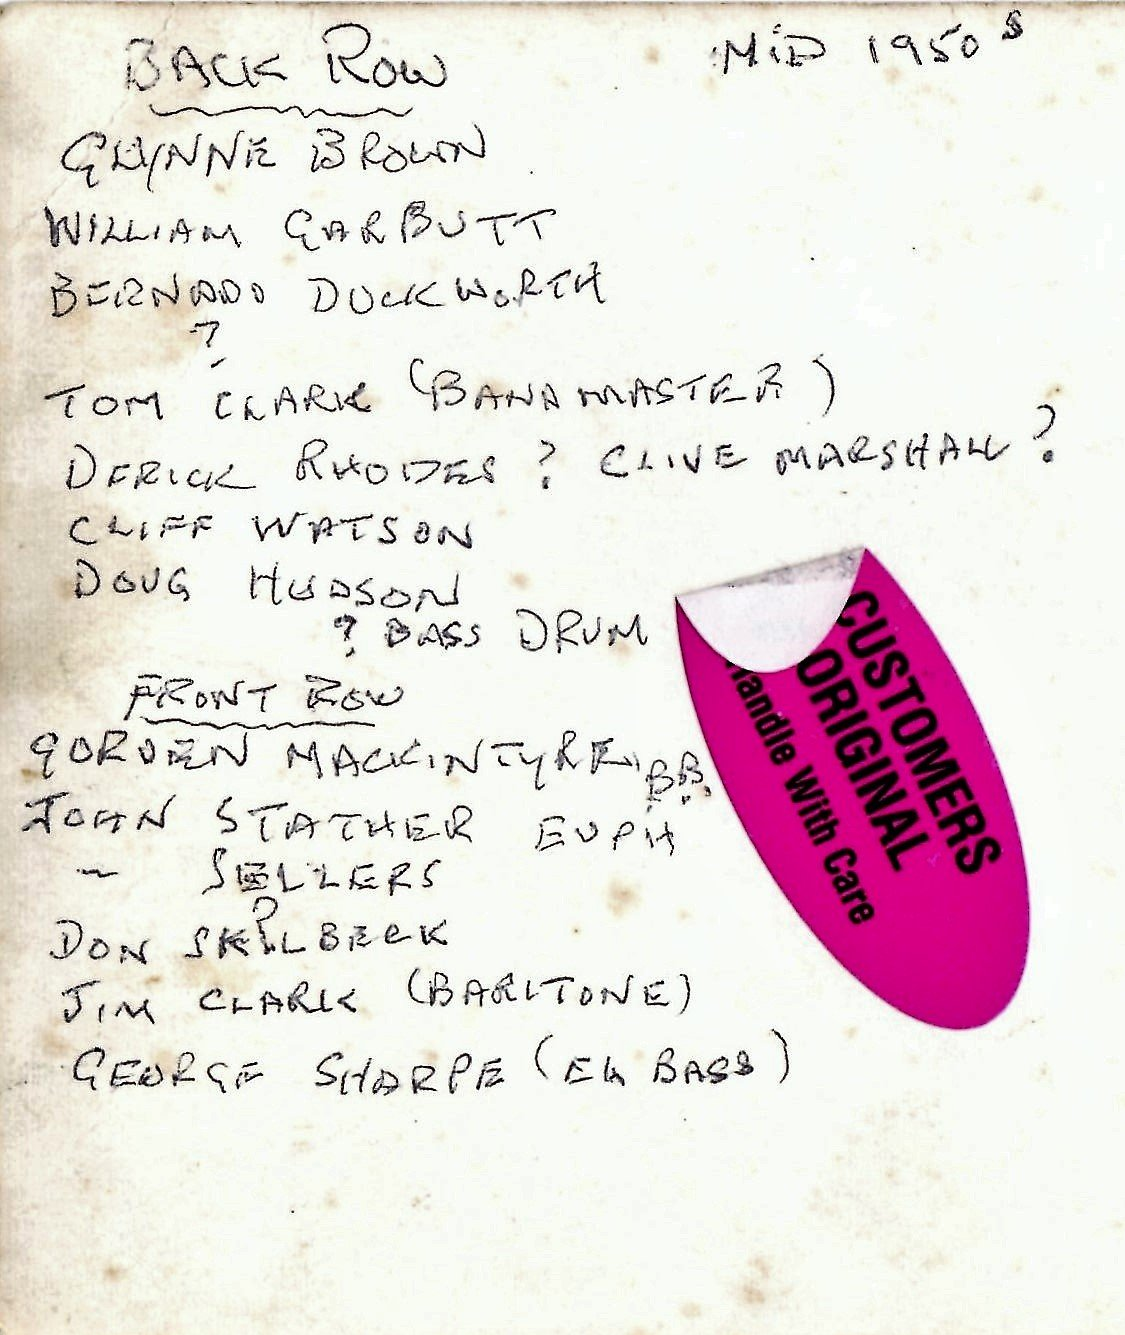 BACK ROW MID 1950S
GLYNNE BROWN
WILLIAM GARBUTT
BERNADD DUCKWORTH
?
TOM CLARK (BANDMASTER)
DERICK RHODES ? CLIVE MARSHALL ?
CLIFF WATSON
DOUG HUDSON
? BASS DRUM
FRONT ROW
GORDEN MACKINTYRE, BB.
JOHN STATHER EUPH
- SELLERS
?
DON SKILBECK
JIM CLARK (BARITONE)
GEORGE SHARPE (Eb BASS)
CUSTOMERS
ORIGINAL
Handle With Care